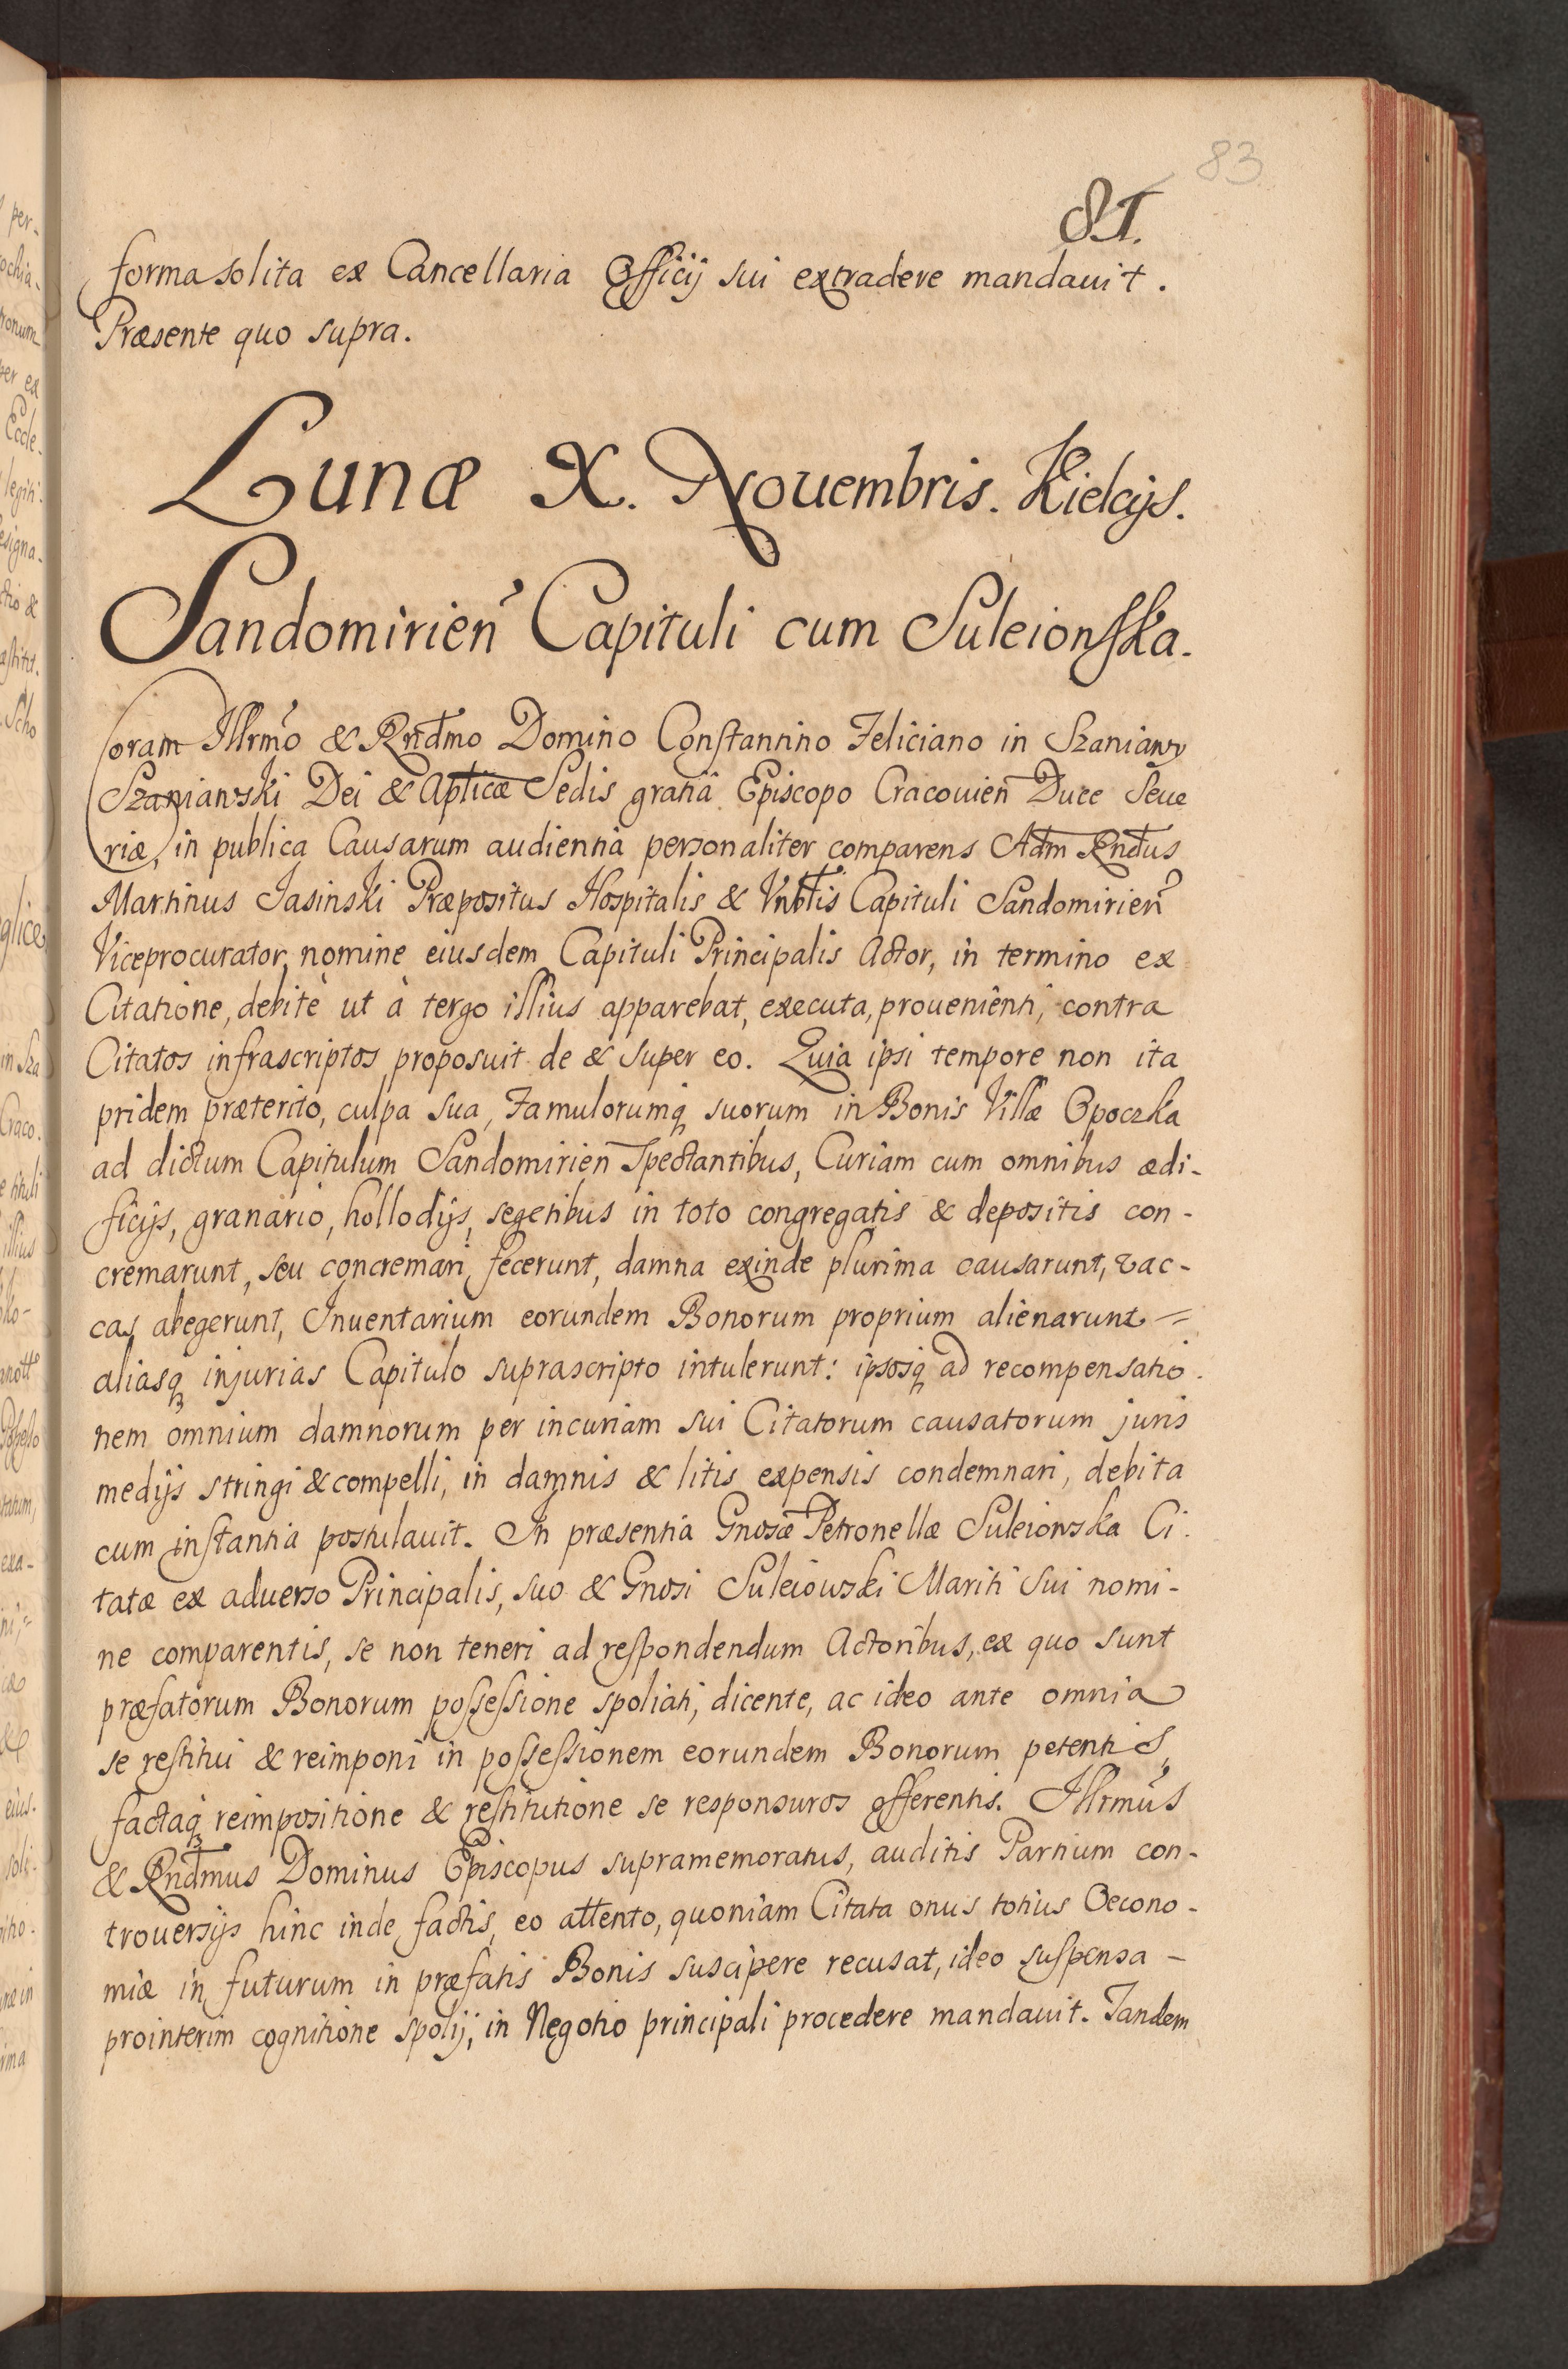 83
81.
forma solita ex Cancellaria Officij sui extradere mandauit.
Præsente quo supra.
Lunæ X. Nouembris. Kielcijs.
Sandomirien̄ Capituli cum Suleionska.
Coram Illrmo & Rndmo Domino Constantino Feliciano in Szaniawy
Szaniawski Dei & Aplicæ Sedis gratiâ Episcopo Cracouien̄ Duce Seue
riæ, in publica Causarum audientia personaliter comparens Adm Rndus
Martinus Jasinski Præpositus Hospitalis & Vnblis Capituli Sandomirien̄
Viceprocurator, nomine eiusdem Capituli Principalis Actor, in termino ex
Citatione, debitè ut à tergo illius apparebat, executa, prouenienti, contra
Citatos infrascriptos proposuit de & super eo. Quia ipsi tempore non ita
pridem præterito, culpa sua, Famulorumq suorum in Bonis Villæ Opoczka
ad dictum Capitulum Sandomirien̄ Spectantibus, Curiam cum omnibus ædi-
ficijs, granario, hollodijs, segetibus in toto congregatis & depositis con-
cremarunt, seu concremari fecerunt, damna exinde plurima causarunt, vac-
cas abegerunt, Inuentarium eorundem Bonorum proprium alienarunt =
aliasq injurias Capitulo suprascripto intulerunt: ipsosq ad recompensatio.
nem omnium damnorum per incuriam sui Citatorum causatorum juris
medijs stringi & compelli, in damnis & litis expensis condemnari, debita
cum instantia postulauit. In præsentia Gnosæ Petronellæ Suleiowska Ci.
tatæ ex aduerso Principalis, suo & Gnosi Suleiowski Mariti sui nomi-
ne comparentis, se non teneri ad respondendum Actoribus, ex quo sunt
præfatorum Bonorum possessione spoliati, dicente, ac ideo ante omnia
se restitui & reimponi in possessionem eorundem Bonorum petentis,
factaq reimpositione & restitutione se responsuros offerentis. Illrmus
& Rndmus Dominus Episcopus supramemoratus, auditis Partium con-
trouersijs hinc inde factis, eo attento, quoniam Citata onus totius Oecono-
miæ in futurum in præfatis Bonis suscipere recusat, ideo suspensa -
prointerim cognitione spolij, in Negotio principali procedere mandauit. Tandem